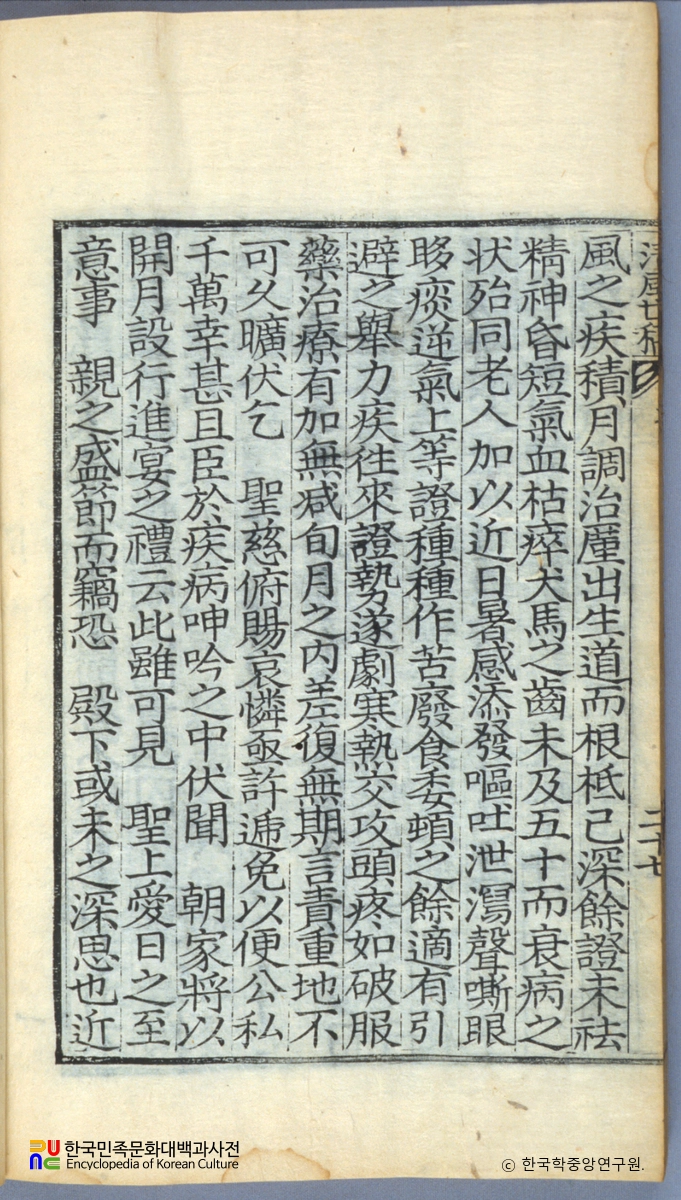 風之疾積月調治廑出生道而根柢已深餘證未祛
精神昏短氣血枯瘁犬馬之齒未及五十而衰病之
状殆同老人加以近日暑感添發嘔吐泄瀉聲嘶眼
眵痰逆氣上等證種種作苦廢食委頓之餘適有引
避之舉力疾往來證勢遂劇寒熱交攻頭疼如破服
藥治療有加無减旬月之内差復無期言責重地不
可久曠伏乞 聖慈俯賜哀憐亟許遞免以便公私
千萬幸甚且臣於疾病呻吟之中伏聞 朝家將以
開月設行進宴之禮云此雖可見 聖上愛日之至
意事 親之盛節而竊恐 殿下或未之深思也近
二十七
한국민족문화대백과사전
Encyclopedia of Korean Culture
ⓒ 한국학중앙연구원.